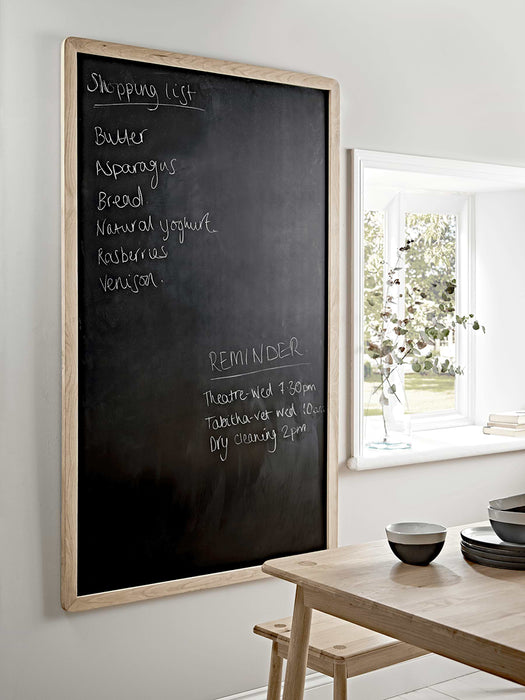 Shopping list
Butter
Asparagus
Bread
Natural yoghurt
Rasberries
Venison.
REMINDER
Theatre-Wed 7.30pm
Tabitha-vet wed 10am
Dry cleaning 2pm